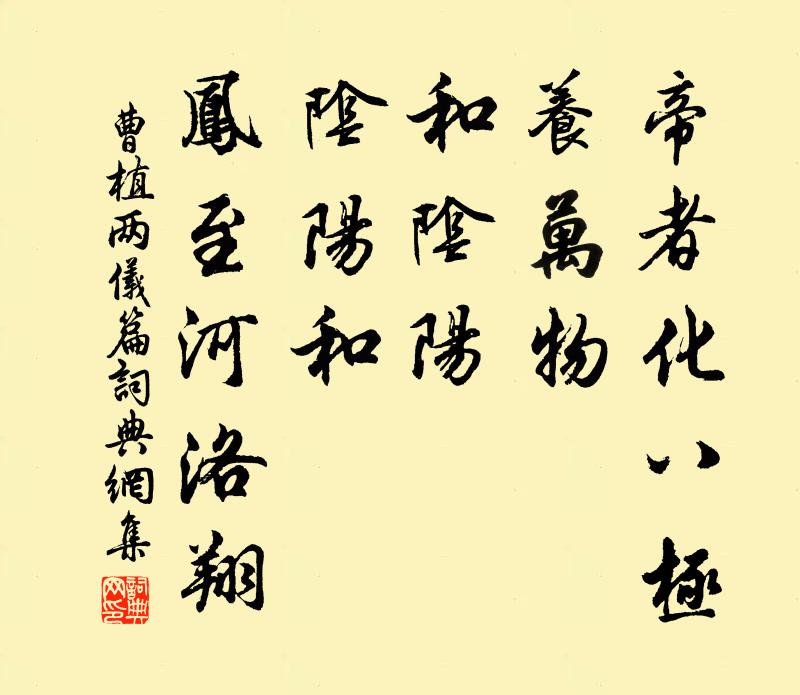 帝者化八極
養萬物
和陰陽
陰陽和
鳳至河洛翔
曹植两儀篇詞典網集
詞典网印